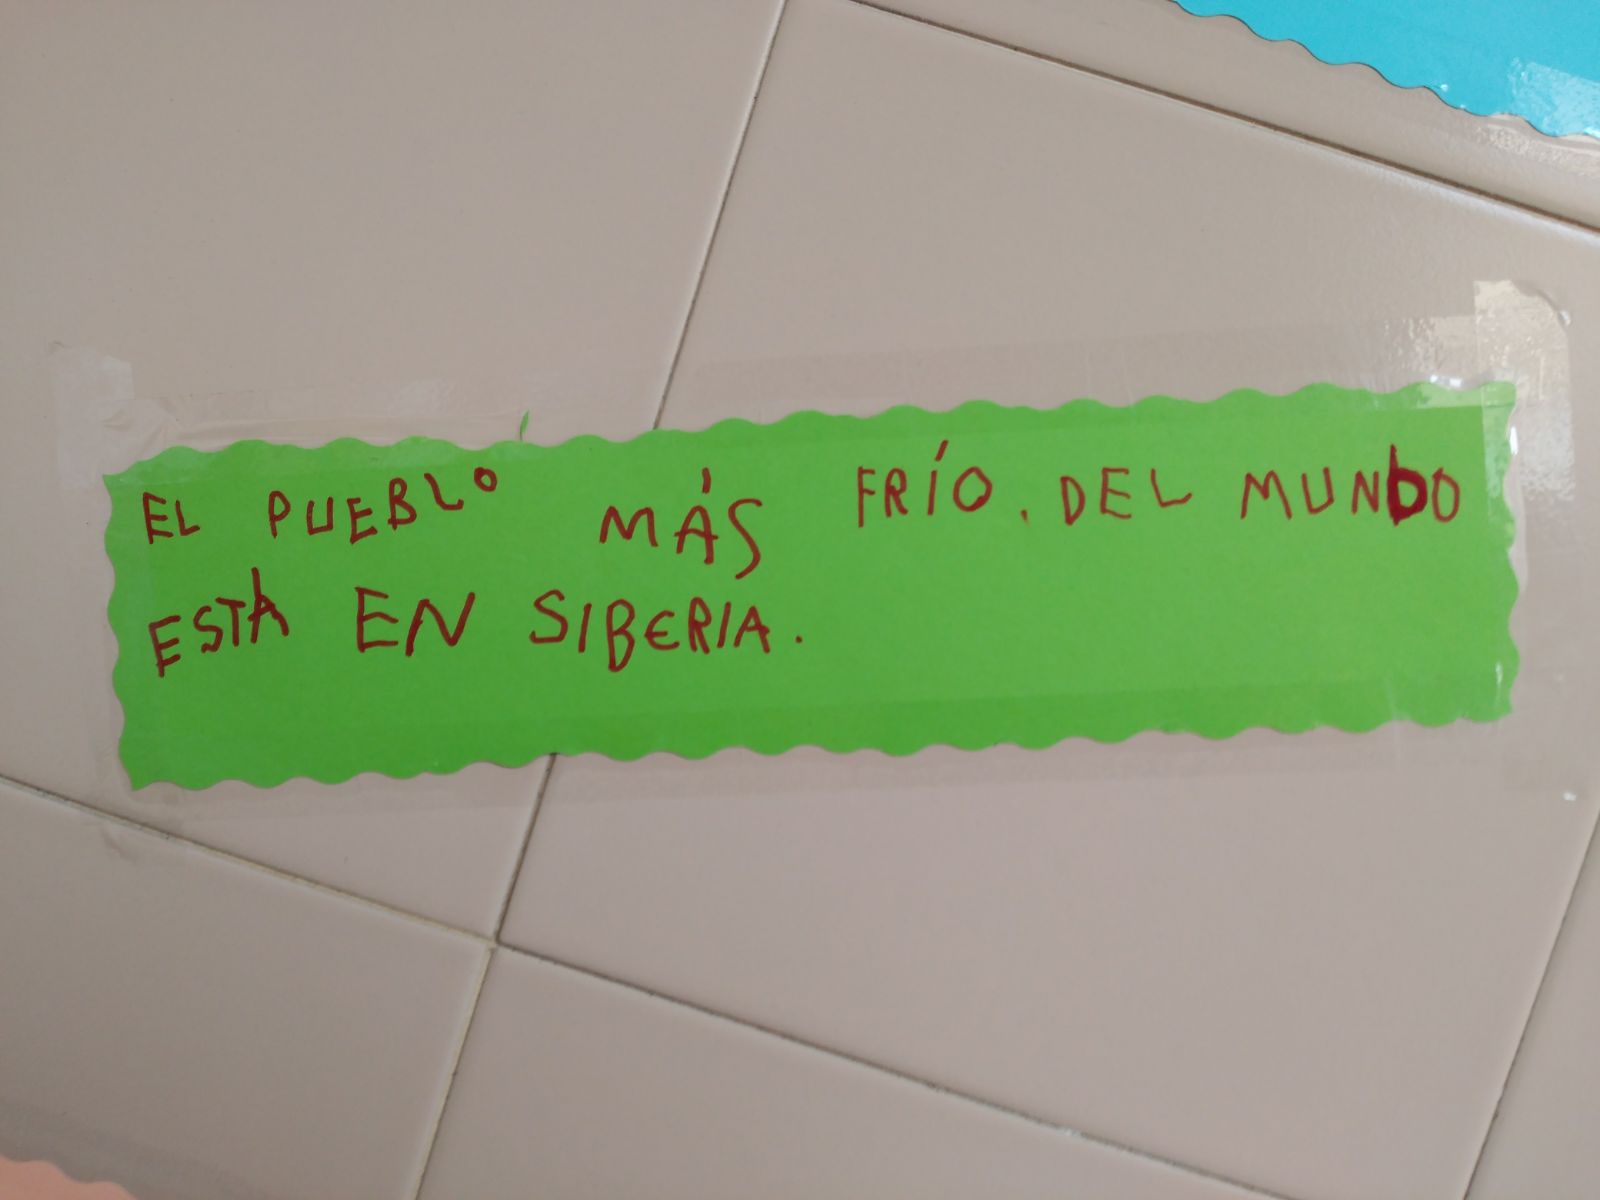 EL PUEBLO MÁS FRÍO. DEL MUNDO
ESTÁ EN SIBERIA.